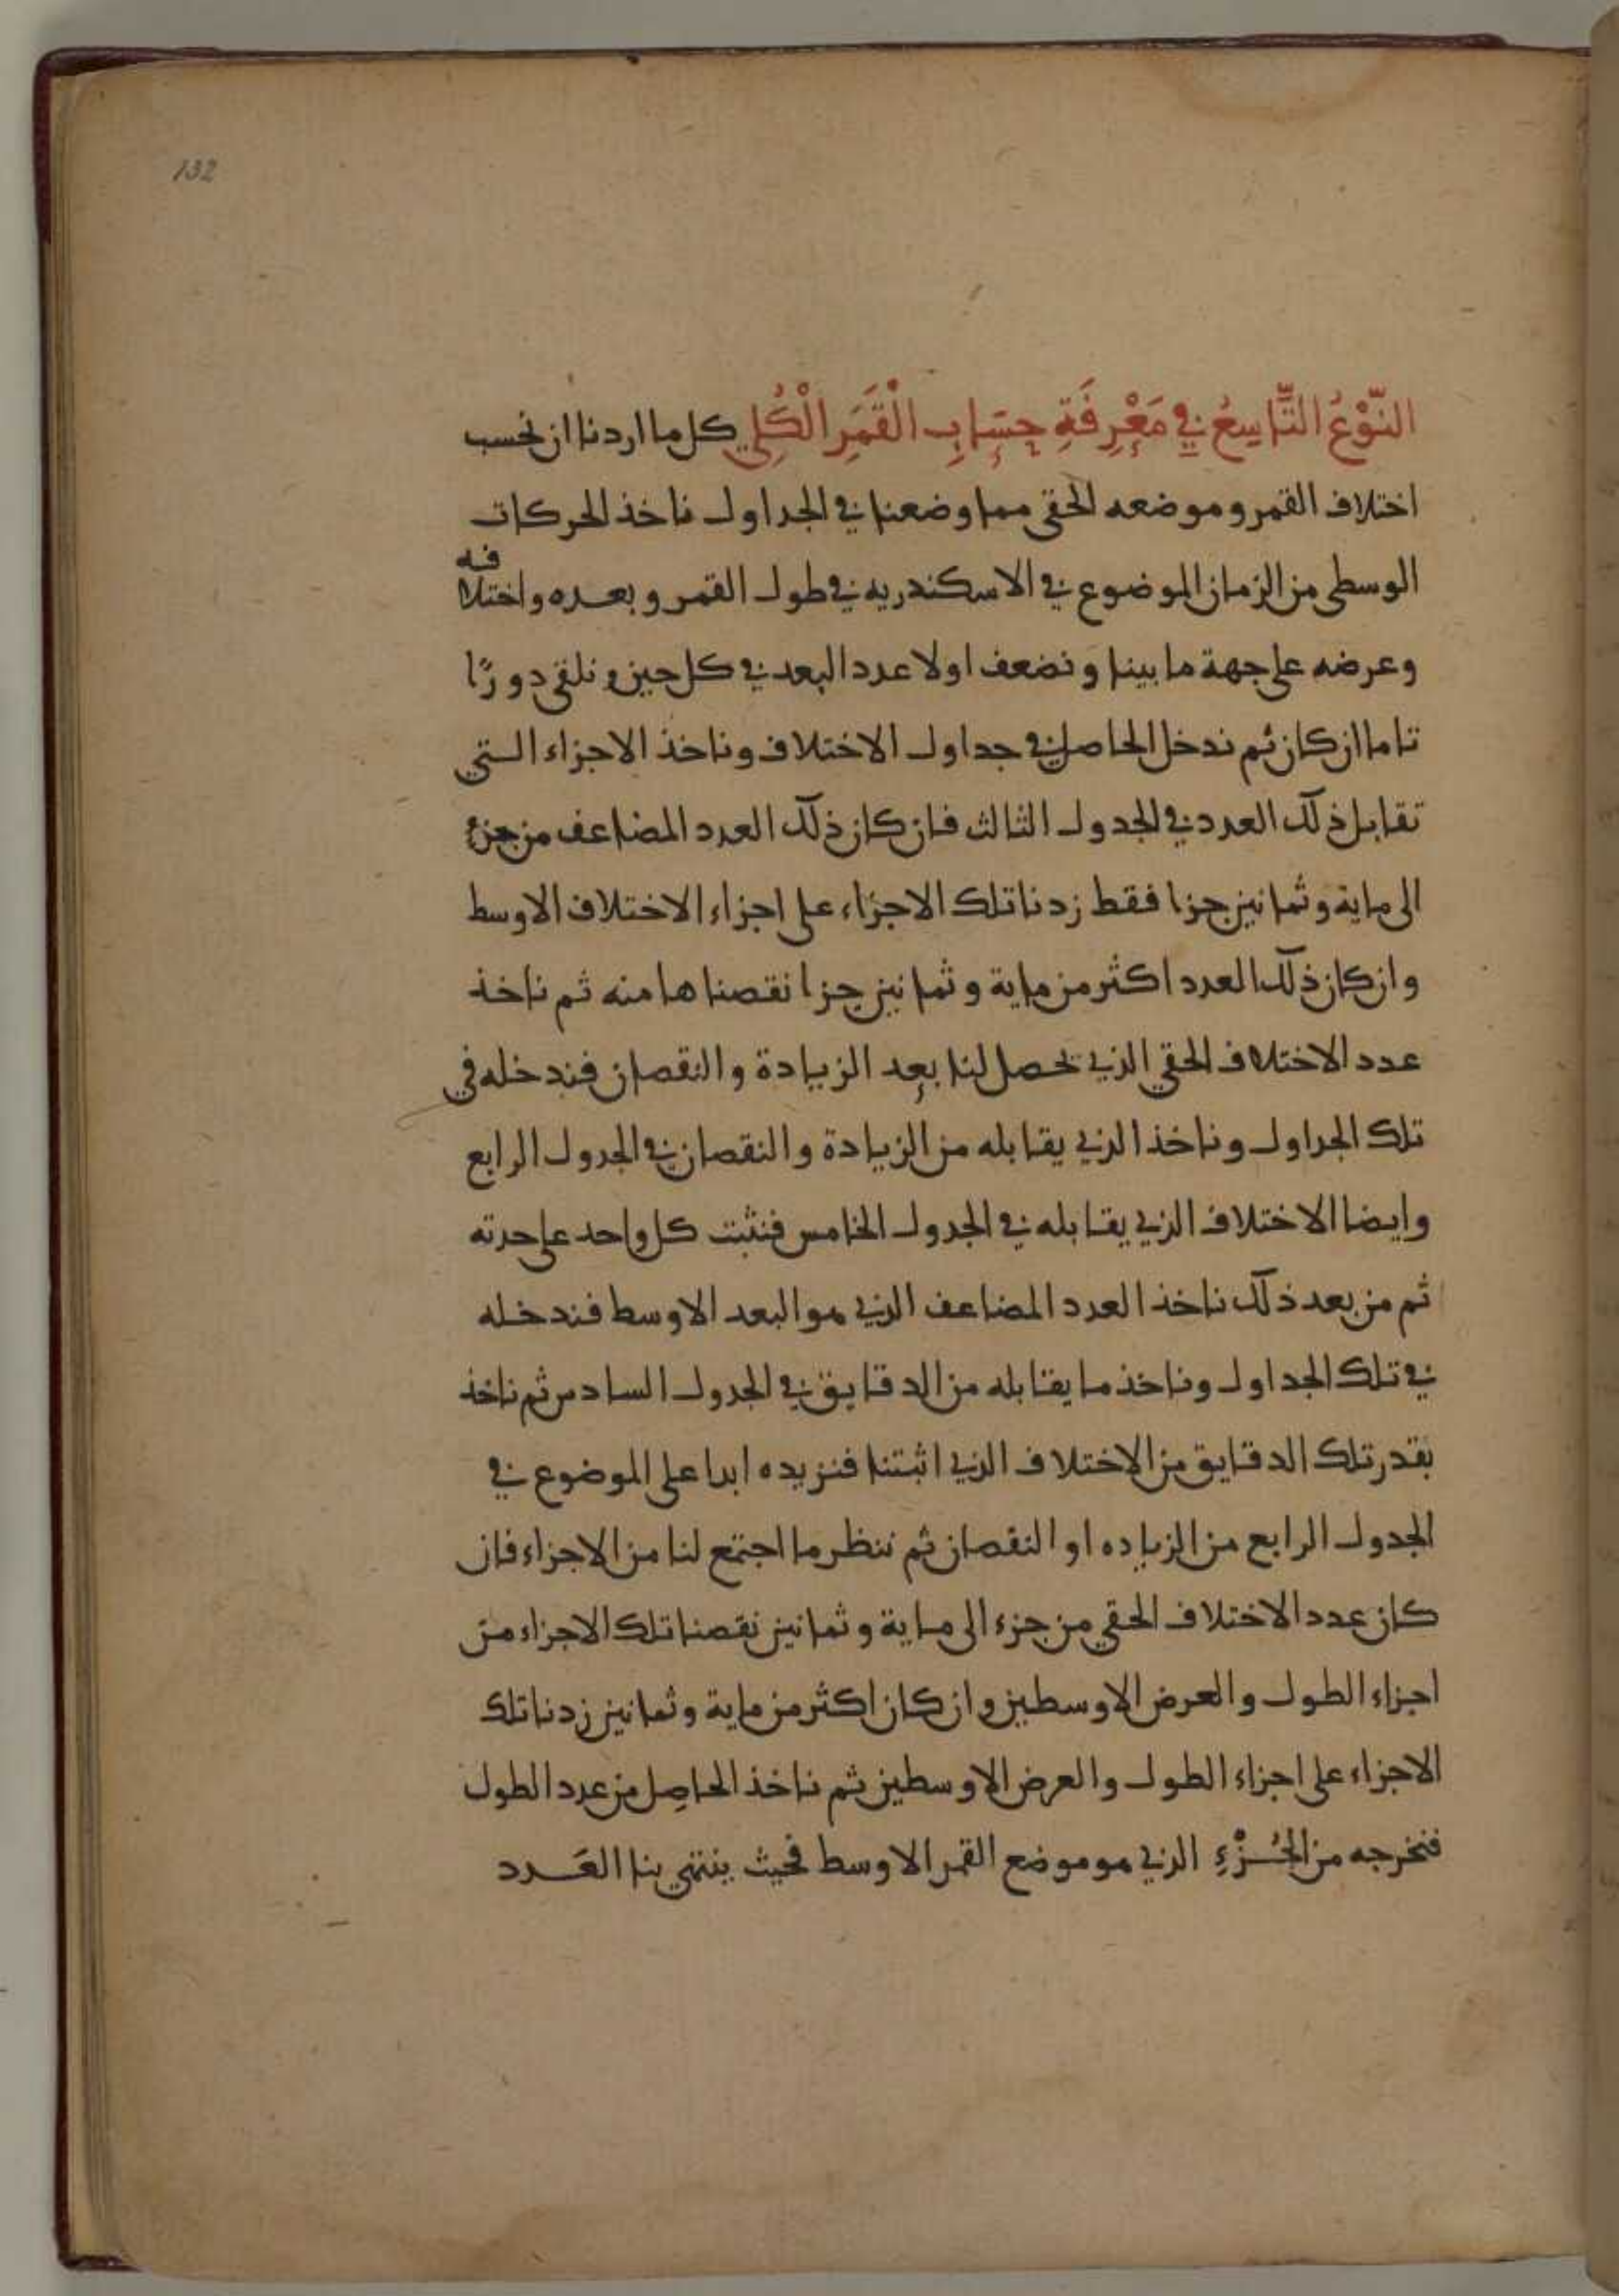 132
النَّوْعُ التَّاسِعُ في مَعْرِفَةِ حِسَابِ الْقَمَرِ الْكُلي كل ما اردنا ان نحسب
اختلاف القمر وموضعه الحقي مما وضعنا في الجداول ناخذ الحركات
الوسطى من الزمان الموضوع في الاسكندريه في طول القمر وبعده واختلافه
وعرضه على جهة ما بينا ونضعف اولا عدد البعد في كل حين ونلقي دورًا
تاما ان كان ثم ندخل الحاصل في جداول الاختلاف وناخذ الاجزاء التي
تقابل ذلك العدد في الجدول الثالث فان كان ذلك العدد المضاعف من جزء
الى ماية وثمانين جزا فقط زدنا تلك الاجزاء على اجزاء الاختلاف الاوسط
وان كان ذلك العدد اكثر من ماية وثمانين جزا نقصناها منه ثم ناخذ
عدد الاختلاف الحقي الذي تحصل لنا بعد الزيادة والنقصان فندخله في
تلك الجداول وناخذ الذي يقابله من الزيادة والنقصان في الجدول الرابع
وايضا الاختلاف الذي يقابله في الجدول الخامس فنثبت كل واحد على حدته
ثم من بعد ذلك ناخذ العدد المضاعف الذي هو البعد الاوسط فندخله
في تلك الجداول وناخذ ما يقابله من الدقايق في الجدول السادس ثم ناخذ
بقدر تلك الدقايق من الاختلاف الذي اثبتنا فنزيده ابدا على الموضوع في
الجدول الرابع من الزياده او النقصان ثم ننظر ما اجتمع لنا من الاجزاء فان
كان عدد الاختلاف الحقي من جزء الى ماية وثمانين نقصنا تلك الاجزاء من
اجزاء الطول والعرض الاوسطين وان كان اكثر من ماية وثمانين زدنا تلك
الاجزاء على اجزاء الطول والعرض الاوسطين ثم ناخذ الحاصِل من عدد الطول
فنخرجه من الجُزْءِ الذي هو موضع القمر الاوسط فحيث ينتهي بنا العَدد